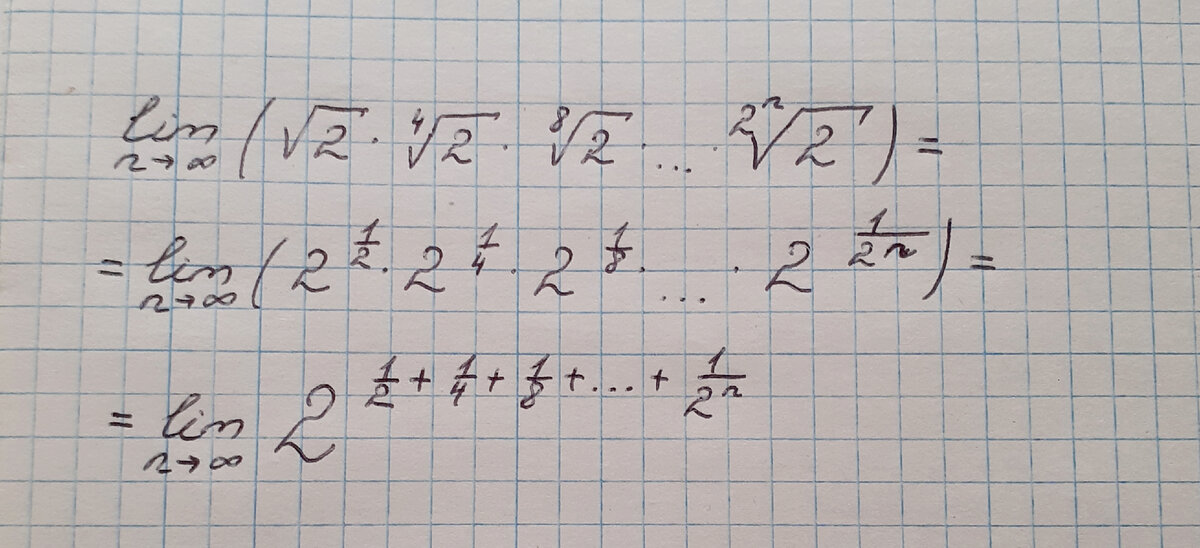 lim n→∞ (√2 · ⁴√2 · ⁸√2 · ... · 2ⁿ√2) =
= lim n→∞ (2^(1/2) · 2^(1/4) · 2^(1/8) · ... · 2^(1/2ⁿ)) =
= lim n→∞ 2^(1/2 + 1/4 + 1/8 + ... + 1/2ⁿ)